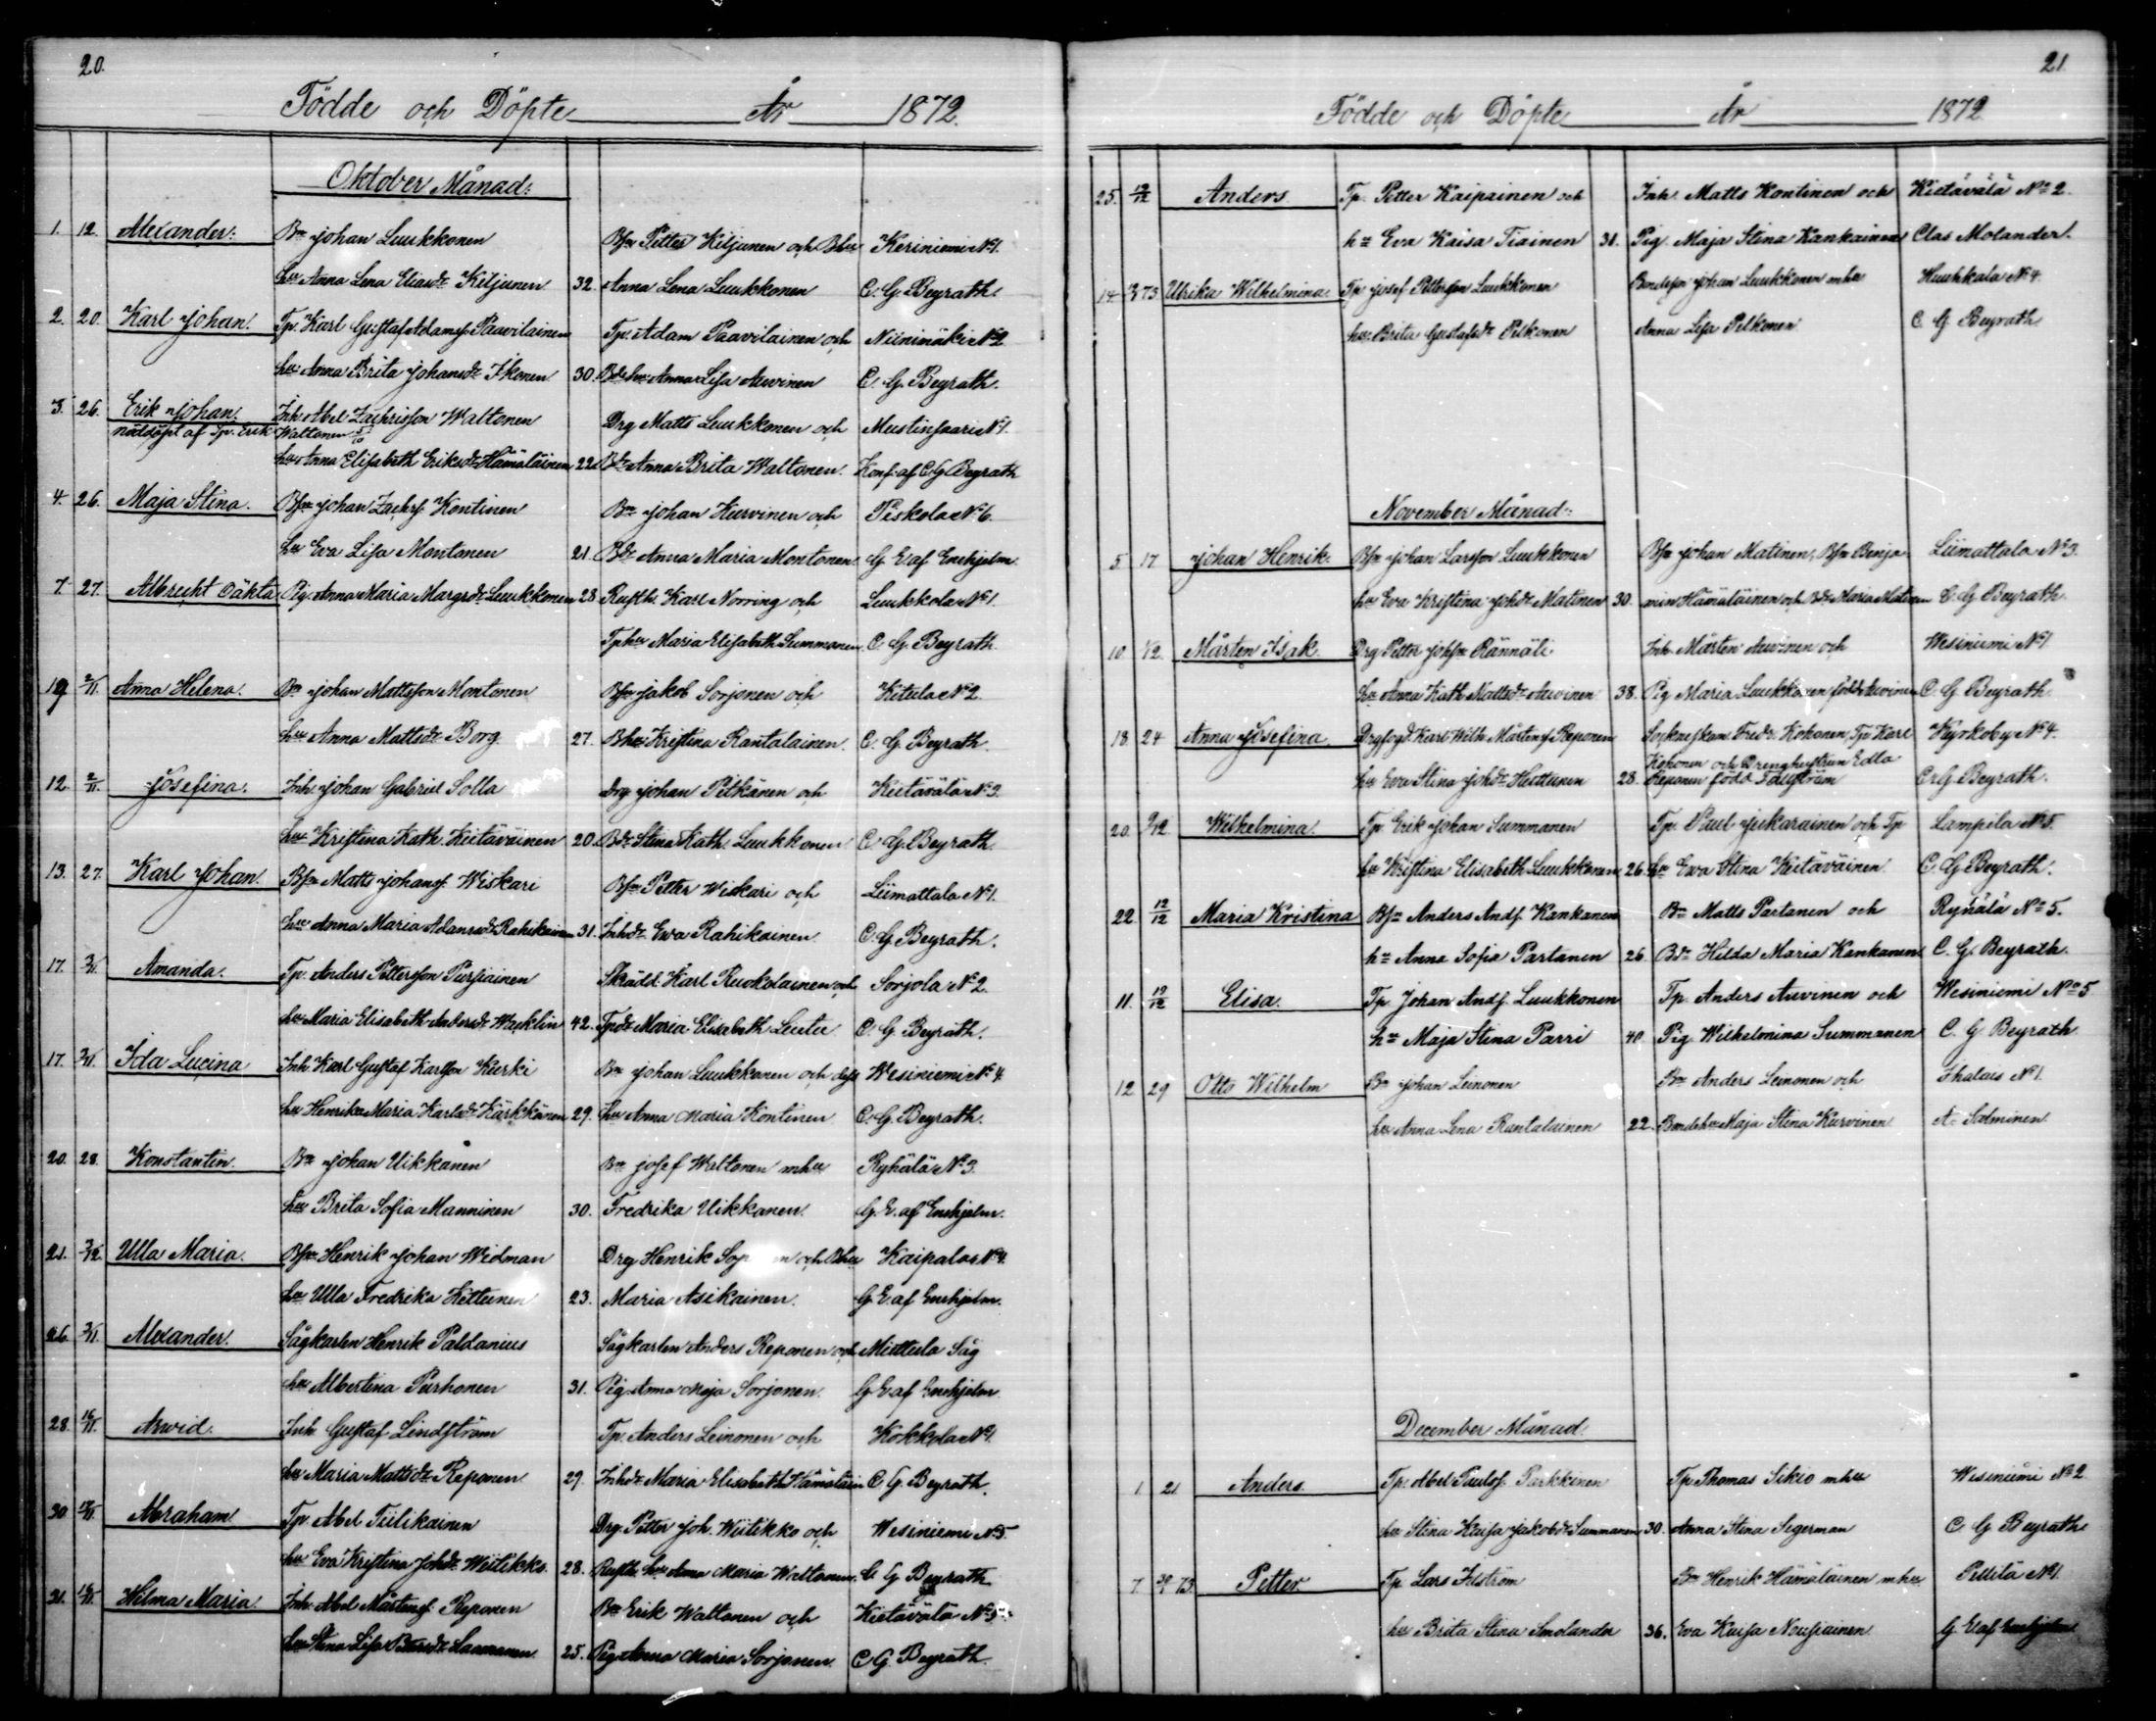 20.
Födde och Döpte År 1872.
Oktober Månad:
1. 12. Alexander: Bn Johan Luukkonen Bsn Petter Kiljunen och Bhu Keriniemi No1.
hu Anna Lena Eliasdr Kiljunen 32. Anna Lena Luukkonen C. G. Beyrath.
2. 20. Karl Johan. Tp. Karl Gustaf Adamsf. Paavilainen Tp. Adam Paavilainen och Niinimäki No2
hu Anna Brita Johansdr Ikonen 30. Anna Lisa Auvinen C. G. Beyrath.
3. 26. Erik Johan. Inh. Abel Zachrisson Waltonen Drg Matts Luukkonen och Mustinsaari No1.
nöddöpt af Tp. Erik Waltonen 5/10
hu Anna Elisabeth Eriksdr Hämäläinen 22. Bdr Anna Brita Waltonen. Konf. af C. G. Beyrath
4. 26. Maja Stina. Bsn Johan Zachrs. Kontinen Bn Johan Kurvinen och Piskola No6.
hu Eva Lisa Montonen 21. Bdr Anna Maria Montonen. G. E. af Enehjelm.
7. 27. Albrecht oäkta Pig. Anna Maria Margrdr Luukkonen 28 Rusth. Karl Norring och Luukkola No1.
Tphu Maria Elisabeth Summanen. C. G. Beyrath.
19 2/11. Anna Helena. Bn Johan Mattsson Montonen Bsn Jakob Sorjonen och Kitula No2.
hu Anna Mattsdr Borg. 27. Bhu Kristina Rantalainen. C. G. Beyrath.
12. 2/11. Josefina. Inh. Johan Gabriel Solla Drg Johan Pitkänen och Kietävälä No3.
hu Kristina Kath. Kietäväinen 20. Bdr Stina Kath. Luukkonen C. G. Beyrath.
13. 27. Karl Johan. Bsn Matts Johansf. Wiskari Bsn Petter Wiskari och Liimattala No1.
hu Anna Maria Adamsdr Rahikainen 31. Inhdr Eva Rahikainen. C. G. Beyrath.
17. 3/11. Amanda. Tp. Anders Pettersson Pursiainen Skrädd. Karl Ruokolainen och Sorjola No2.
hu Maria Elisabeth Andersdr Wacklin 42. Tpdr Maria Elisabeth C. G. Beyrath.
17. 3/11. Ida Lucina Inh Karl Gustaf Karlsson Kurki Bn Johan Luukkonen och dess Wesiniemi No4.
hu Henrika Maria Karlsdr Kärkkänen 29. hu Anna Maria Kontinen C. G. Beyrath.
20. 28. Konstantin. Bn Johan Uikkanen Bn Josef Waltonen mhu Ryhälä No3.
hu Brita Sofia Manninen 30. Fredrika Uikkanen. G. E. af Enehjelm.
21. 3/12. Ulla Maria. Bsn Henrik Johan Widman Drg Henrik Sop n och Bhu Kaipala No4.
hu Ulla Fredrika Kettunen 23. Maria Asikainen. G. E. af Enehjelm.
26. 3/11. Alexander. Sågkarlen Henrik Paldanius Sågkarlen Anders Reponen och Miettula Såg
hu Albertina Purhonen 31. Pig. Anna Maja Sorjonen. G. E. af Enehjelm
28. 16/11. Arvid. Inh. Gustaf Lindström Tp. Anders Leinonen och Kokkola No1.
hu Maria Mattsdr Reponen 29. Inhdr Maria Elisabeth Hämäläin C. G. Beyrath.
30. Abraham Tp Abel Tiilikainen Drg. Petter Joh. Wiitikko och Wesiniemi No5.
hu Eva Kristina Johdr Wiitikko. 28. Rusth. hu Anna Maria Waltonen. C. G. Beyrath.
21. Hilma Maria. Inh. Abel Mårtensf. Reponen Bn Erik Waltonen och Kietävälä No5.
hu Stina Lisa 25. Pig Anna Maria Sorjonen. C. G. Beyrath.
21.
Födde och Döpte År 1872
25. 19/12 Anders. Tp. Petter Kaipainen och Inh. Matts Kontinen och Kietävälä No2.
hu Eva Kaisa Tiainen 31. Pig. Maja Stina Kankainen Clas Molander.
14. 73. Ulrika Wilhelmina. Tp Josef Pettersson Luukkonen Bondeson Johan Luukkonen mhu Huuhkala No4.
hu Brita Gustafsdr Pelkonen Anna Lisa Pelkonen C G Beyrath
November Månad:
5 17 Johan Henrik. Bsn Johan Larsson Luukkonen Bsn Johan Matinen, Bsn Benja Liimattala No3.
hu Eva Kristina Johdr Matinen 30. min Hämäläinen och Bdr Maria Matinen C. G. Beyrath.
10. 1/12. Mårten Isak. Drg Petter Johsn Rännäli Inh. Mårten Auvinen och Wesiniemi No1
hu Anna Kath. Mattsdr Auvinen 38. Pig. Maria Luukkonen född Auvinen C. G. Beyrath.
18. 24. Anna Josefina Karl Wilh. Mårtensf Reponen Fredr. Kohonen, Tp. Karl Kyrkoby No4.
Kohonen och Drenghustrun Edla
hu Eva Stina Johdr Huttunen 28. Reponen född C. G. Beyrath.
20. 1/12 Wilhelmina. Tp. Erik Johan Summanen Tp. Paul Jukarainen och Tp Lampila No5.
hu Kristina Elisabeth Luukkonen 26. hu Eva Stina Kietäväinen C. G. Beyrath.
22. 12/12 Maria Kristina Bsn Anders Andf. Kankanen Bn Matts Partanen och Ryhälä No5.
hu Anna Sofia Partanen 26. Bdr Hilda Maria Kankanen. C. G. Beyrath.
11. 19/12 Elisa. Tp Johan Andf. Luukkonen Tp. Anders Auvinen och Wesiniemi No5
hu Maja Stina Parri 40. Pig Wilhelmina Summanen C. G. Beyrath
12 29 Otto Wilhelm Bn Johan Leinonen Bn Anders Leinonen och Ihalais No1.
hu Anna Lena Rantalainen 22. Bondehu Maja Stina Kurvinen A. Salminen
December Månad.
1. 21. Anders. Tp. Abel Paulsf. Parkkinen Tp Thomas Sikiö mhu Wesiniemi No2
hu Stina Kaisa Jakobdr Summanen 30. Anna Stina Segerman C. G Beyrath
7. 73. Petter Tp Lars Bn Henrik Hämäläinen mhu Pellilä No1.
hu Brita Stina Smolander 36. Eva Kaisa Nousiainen G. E af Enehjelm